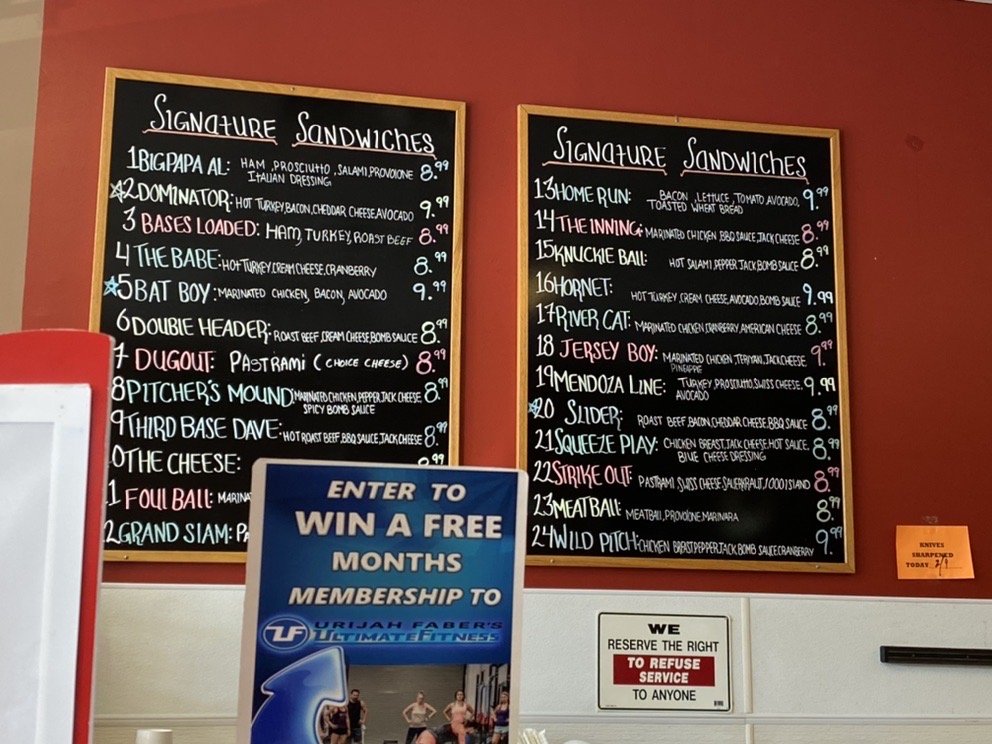 SIGNATURE SANDWICHES
1 BIG PAPA AL: HAM, PROSCIUTTO, SALAMI, PROVOLONE 8.99
ITALIAN DRESSING
2 DOMINATOR: HOT TURKEY, BACON, CHEDDAR CHEESE, AVOCADO 9.99
3 BASES LOADED: HAM, TURKEY, ROAST BEEF 8.99
4 THE BABE: HOT TURKEY, CREAM CHEESE, CRANBERRY 8.99
5 BAT BOY: MARINATED CHICKEN, BACON, AVOCADO 9.99
6 DOUBLE HEADER: ROAST BEEF, CREAM CHEESE, BOMB SAUCE 8.99
7 DUGOUT: PASTRAMI (CHOICE CHEESE) 8.99
8 PITCHER'S MOUND: MARINATED CHICKEN, PEPPER JACK CHEESE 8.99
SPICY BOMB SAUCE
9 THIRD BASE DAVE: HOT ROAST BEEF, BBQ SAUCE, JACK CHEESE 8.99
0 THE CHEESE: .99
1 FOUL BALL: MARINA
2 GRAND SLAM: PA
SIGNATURE SANDWICHES
13 HOME RUN: BACON, LETTUCE, TOMATO, AVOCADO, 9.99
TOASTED WHEAT BREAD
14 THE INNING: MARINATED CHICKEN, BBQ SAUCE, JACK CHEESE 8.99
15 KNUCKLE BALL: HOT SALAMI, PEPPER JACK, BOMB SAUCE 8.99
16 HORNET: HOT TURKEY, CREAM CHEESE, AVOCADO, BOMB SAUCE 9.99
17 RIVER CAT: MARINATED CHICKEN, CRANBERRY, AMERICAN CHEESE 8.99
18 JERSEY BOY: MARINATED CHICKEN, TERIYAKI, JACK CHEESE 9.99
PINEAPPLE
19 MENDOZA LINE: TURKEY, PROSCIUTTO, SWISS CHEESE, 9.99
AVOCADO
20 SLIDER: ROAST BEEF, BACON, CHEDDAR CHEESE, BBQ SAUCE 8.99
21 SQUEEZE PLAY: CHICKEN BREAST, JACK CHEESE, HOT SAUCE, 8.99
BLUE CHEESE DRESSING
22 STRIKE OUT: PASTRAMI, SWISS CHEESE, SAUERKRAUT, 1000 ISLAND 8.99
23 MEATBALL: MEATBALL, PROVOLONE, MARINARA 8.99
24 WILD PITCH: CHICKEN BREAST, PEPPER JACK, BOMB SAUCE, CRANBERRY 9.99
ENTER TO
WIN A FREE
MONTHS
MEMBERSHIP TO
UF URIJAH FABER'S
ULTIMATE FITNESS
KNIVES
SHARPENED
TODAY 2/9
WE
RESERVE THE RIGHT
TO REFUSE
SERVICE
TO ANYONE